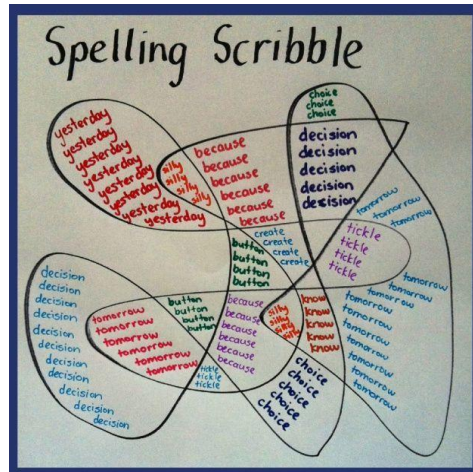 Spelling Scribble
yesterday
yesterday
yesterday
yesterday
yesterday
yesterday
yesterday
yesterday
silly
silly
silly
silly
because
because
because
because
because
because
choice
choice
choice
decision
decision
decision
decision
decision
tomorrow
tomorrow
tomorrow
create
create
create
create
tickle
tickle
tickle
tickle
button
button
button
button
decision
decision
decision
decision
decision
decision
decision
decision
decision
decision
tomorrow
tomorrow
tomorrow
tomorrow
tomorrow
button
button
button
button
because
because
because
because
because
because
tickle
tickle
tickle
silly
silly
silly
silly
know
know
know
know
know
choice
choice
choice
choice
choice
tomorrow
tomorrow
tomorrow
tomorrow
tomorrow
tomorrow
tomorrow
tomorrow
tomorrow
tomorrow